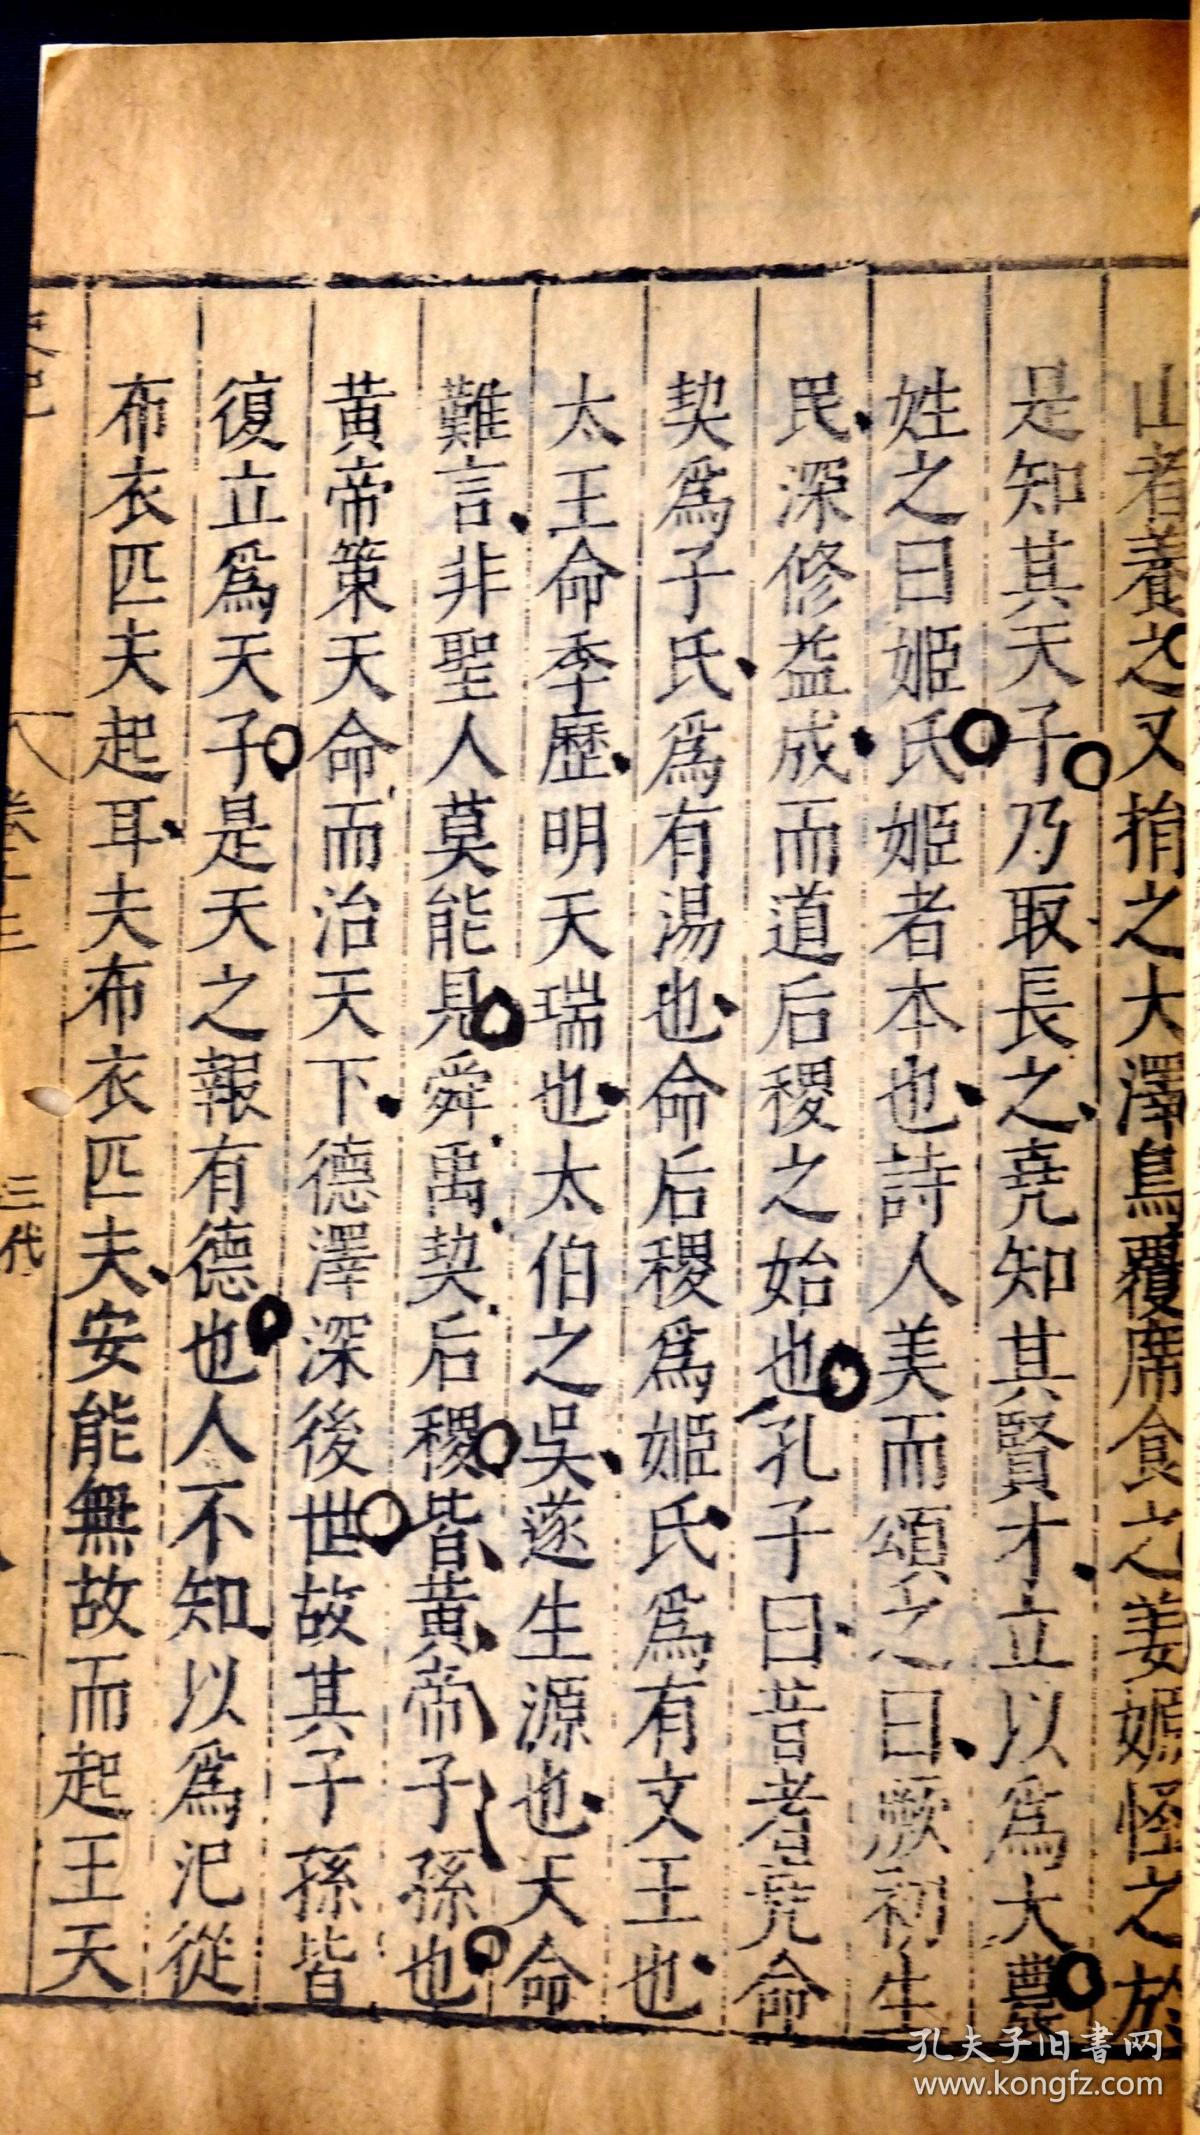 山者養之又捐之大澤鳥覆席食之姜嫄怪之於
是知其天子乃取長之堯知其賢才立以爲大農
姓之曰姬氏姬者本也詩人美而頌之曰厥初生
民深修益成而道后稷之始也孔子曰昔者堯命
契爲子氏爲有湯也命后稷爲姬氏爲有文王也
太王命季歷明天瑞也太伯之吳遂生源也天命
難言非聖人莫能見舜禹契后稷皆黃帝子孫也
黃帝策天命而治天下德澤深後世故其子孫皆
復立爲天子是天之報有德也人不知以爲汜從
布衣匹夫起耳夫布衣匹夫安能無故而起王天
史記 卷十三 三代
孔夫子旧書网
www.kongfz.com